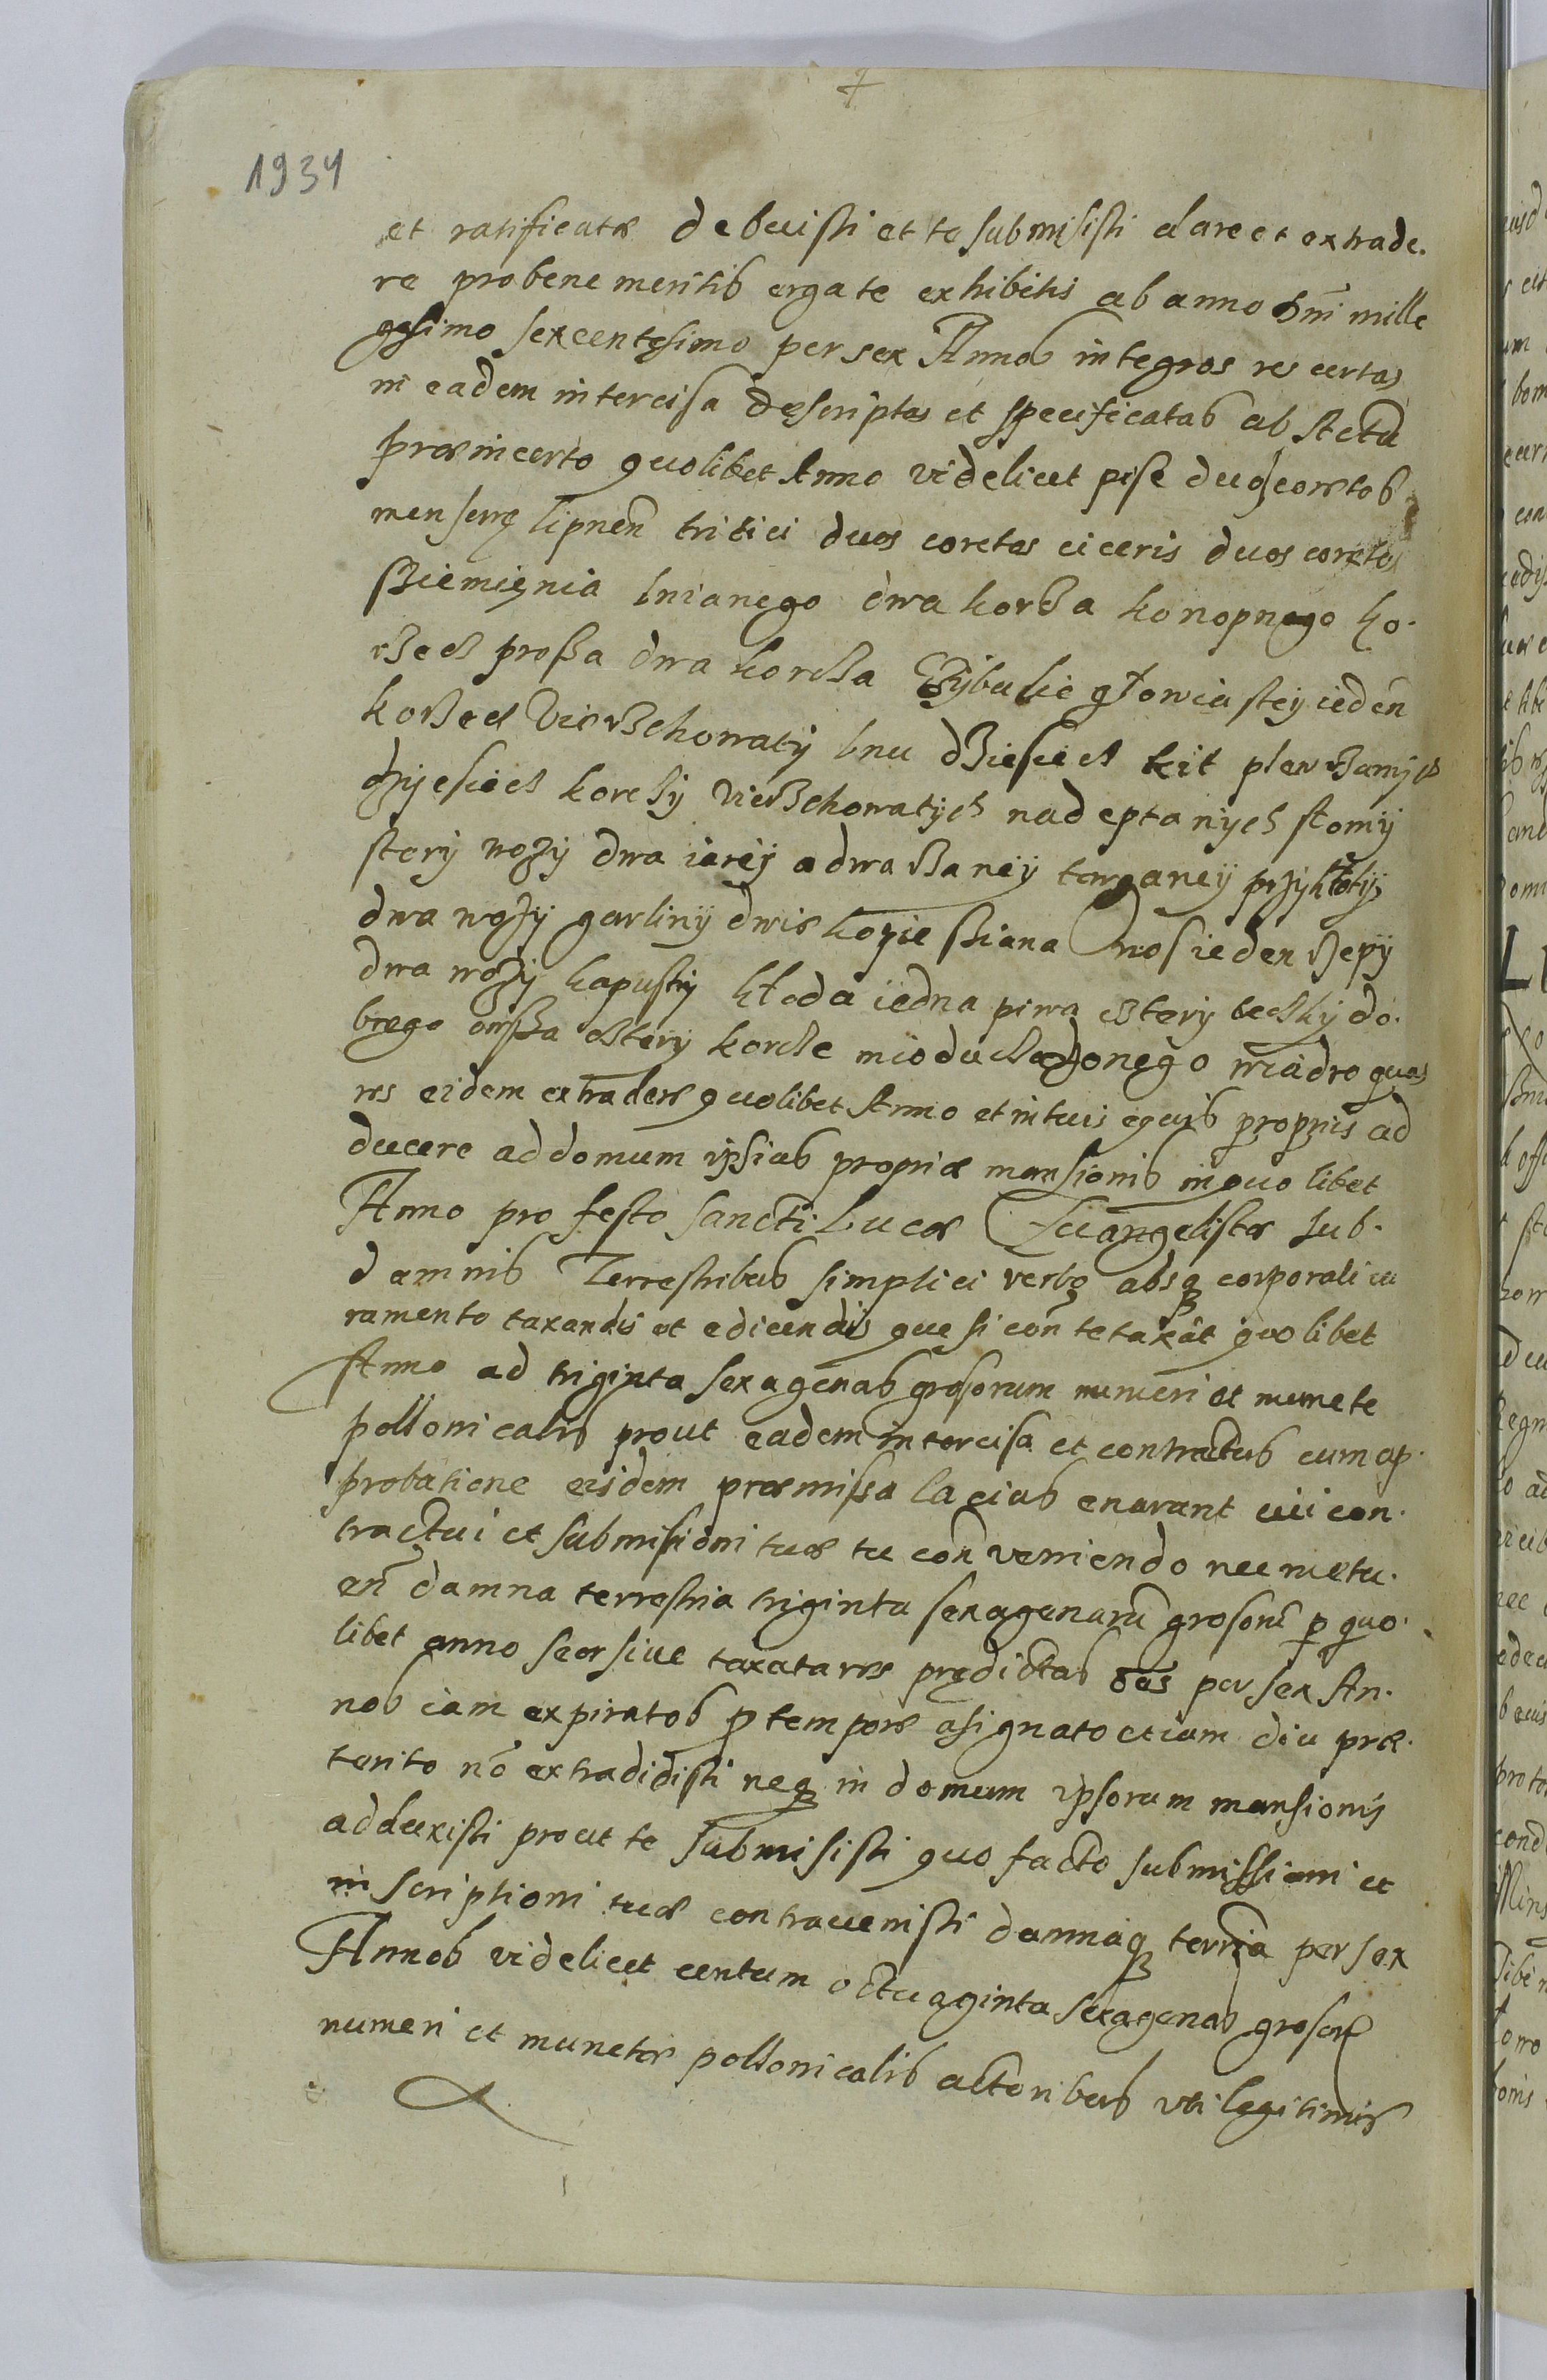 1934
et ratificatæ debuisti et te submisisti dare et extrade.
re pro bene meritis erga te exhibitis ab anno dni mille
gesimo sexcentesimo per sex Annos integros res certas
in eadem intercisa descriptas et specificatas
quolibet Anno videlicet pise duos coretos
mensuræ lipnen tritici duos coretos ciceris duos coretos
sziemięnia lnianego dwa korcza konopnego ko.
rzecz prosza dwa korcza Czybulie głowiastey ieden
korzecz Vierzchowaty lnu dziesiecz kit plew
dzyesiecz korczy Vierzchowatych nadeptanych słomy
stery wozy dwa iarey a dwa targaney
dwa wozy garliny dwie kopie sziana wos ieden rzepy
dwa wozy kapusty kłoda iedna piwa cztery beczky do.
brego owsza cztery korcze miodu wiadro quas
res eidem extradere quolibet Anno et in tuis equis propriis ad
ducere ad domum ipsius propriæ mansionis in quo libet
Anno pro festo sancti Lucæ Euangelistæ sub.
damnis Terrestribus simplici verbo absq corporali iu
ramento taxandis et edicendis que si con te taxat quolibet
Anno ad triginta sexagenas grosorum numeri et munete
pollonicalis prout eadem intercisa et contractus cum ap.
probatione eisdem præmissa lacius enarant cui con.
tractui et submisioni tuæ tu con veniendo nec metu.
en damna terrestria triginta sexagenaru grosoru p quo.
libet anno seorsiue taxata res prędictas oes per sex An.
nos iam expiratos p tempore asignato etiam diu præ.
terito no extradidisti neq in domum ipsorum mansionis
adduxisti prout te submisisti quo facto submissioni et
inscriptioni tuæ contrauenisti damnaq terria per sex
Annos videlicet centum octuaginta sexagenas grosoru
numeri et munetæ pollonicalis actoribus vti legitimis